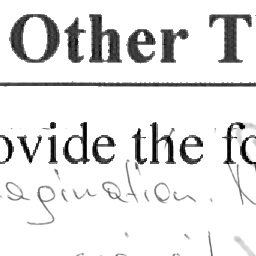 Other T
ovide the fo
agination.